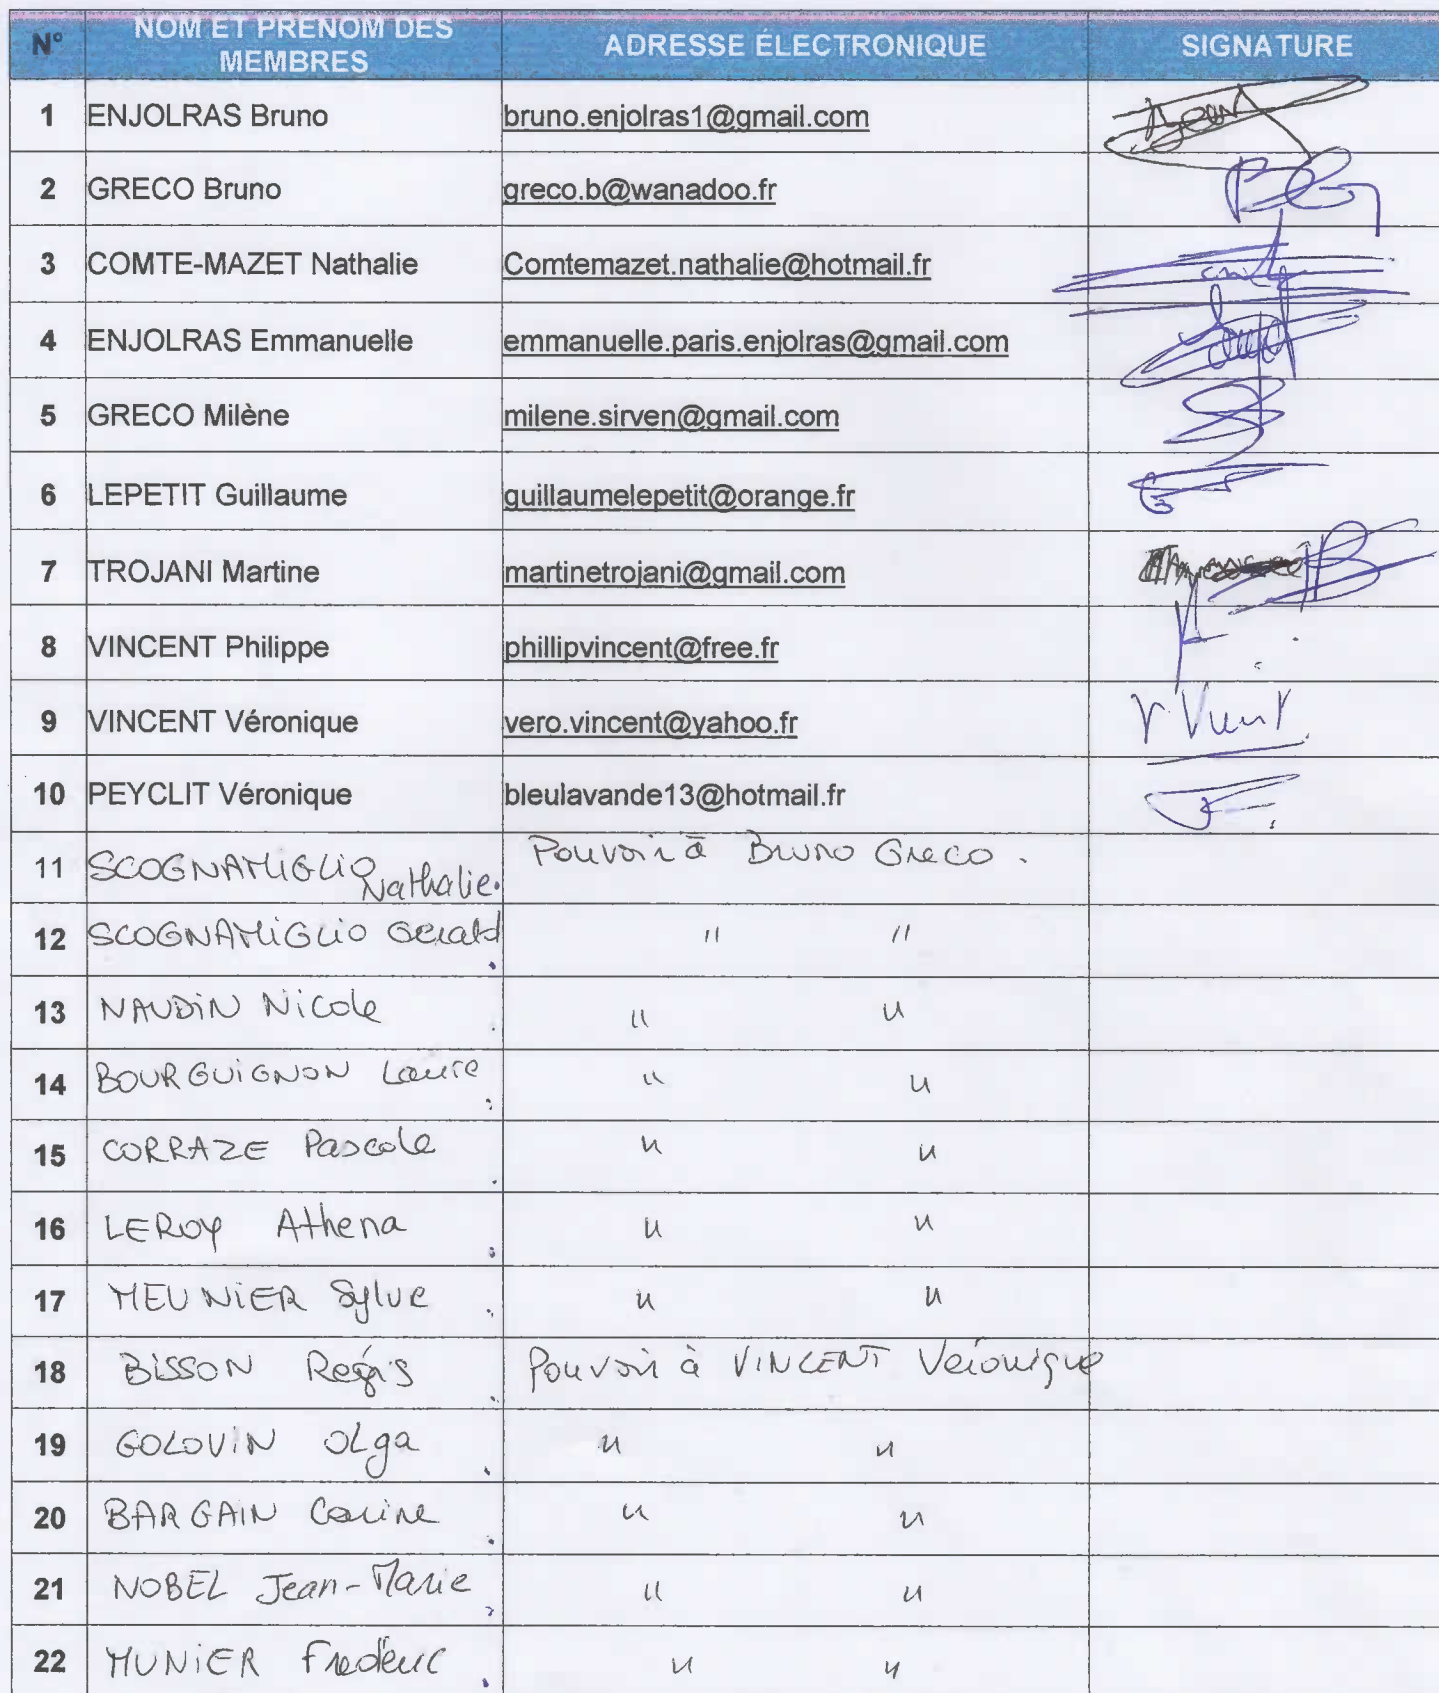 N° NOM ET PRENOM DES MEMBRES ADRESSE ÉLECTRONIQUE SIGNATURE
1 ENJOLRAS Bruno bruno.enjolras1@gmail.com
2 GRECO Bruno greco.b@wanadoo.fr BG
3 COMTE-MAZET Nathalie Comtemazet.nathalie@hotmail.fr
4 ENJOLRAS Emmanuelle emmanuelle.paris.enjolras@gmail.com
5 GRECO Milène milene.sirven@gmail.com
6 LEPETIT Guillaume guillaumelepetit@orange.fr
7 TROJANI Martine martinetrojani@gmail.com
8 VINCENT Philippe phillipvincent@free.fr
9 VINCENT Véronique vero.vincent@yahoo.fr
10 PEYCLIT Véronique bleulavande13@hotmail.fr
11 SCOGNAMIGLIO Nathalie. Pouvoir à Bruno Greco.
12 SCOGNAMIGLIO Gerald. " "
13 NAUDIN Nicole. " "
14 BOURGUIGNON Laure. " "
15 CORRAZE Pascale. " "
16 LEROY Athena. " "
17 MEUNIER Sylvie. " "
18 BISSON Regis. Pouvoir à VINCENT Veronique
19 GOLOVIN Olga. " "
20 BARGAIN Carine. " "
21 NOBEL Jean-Marie. " "
22 MUNIER Frederic. " "